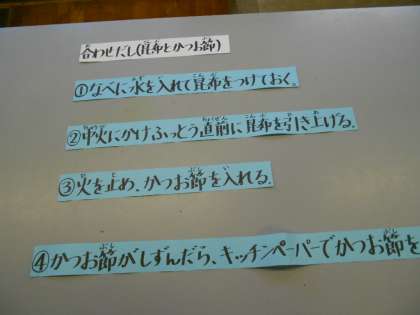 合わせだし(昆布とかつお節)
①なべに水を入れて昆布をつけておく。
②中火にかけふっとう直前に昆布を引き上げる。
③火を止め、かつお節を入れる。
④かつお節がしずんだら、キッチンペーパーでかつお節を